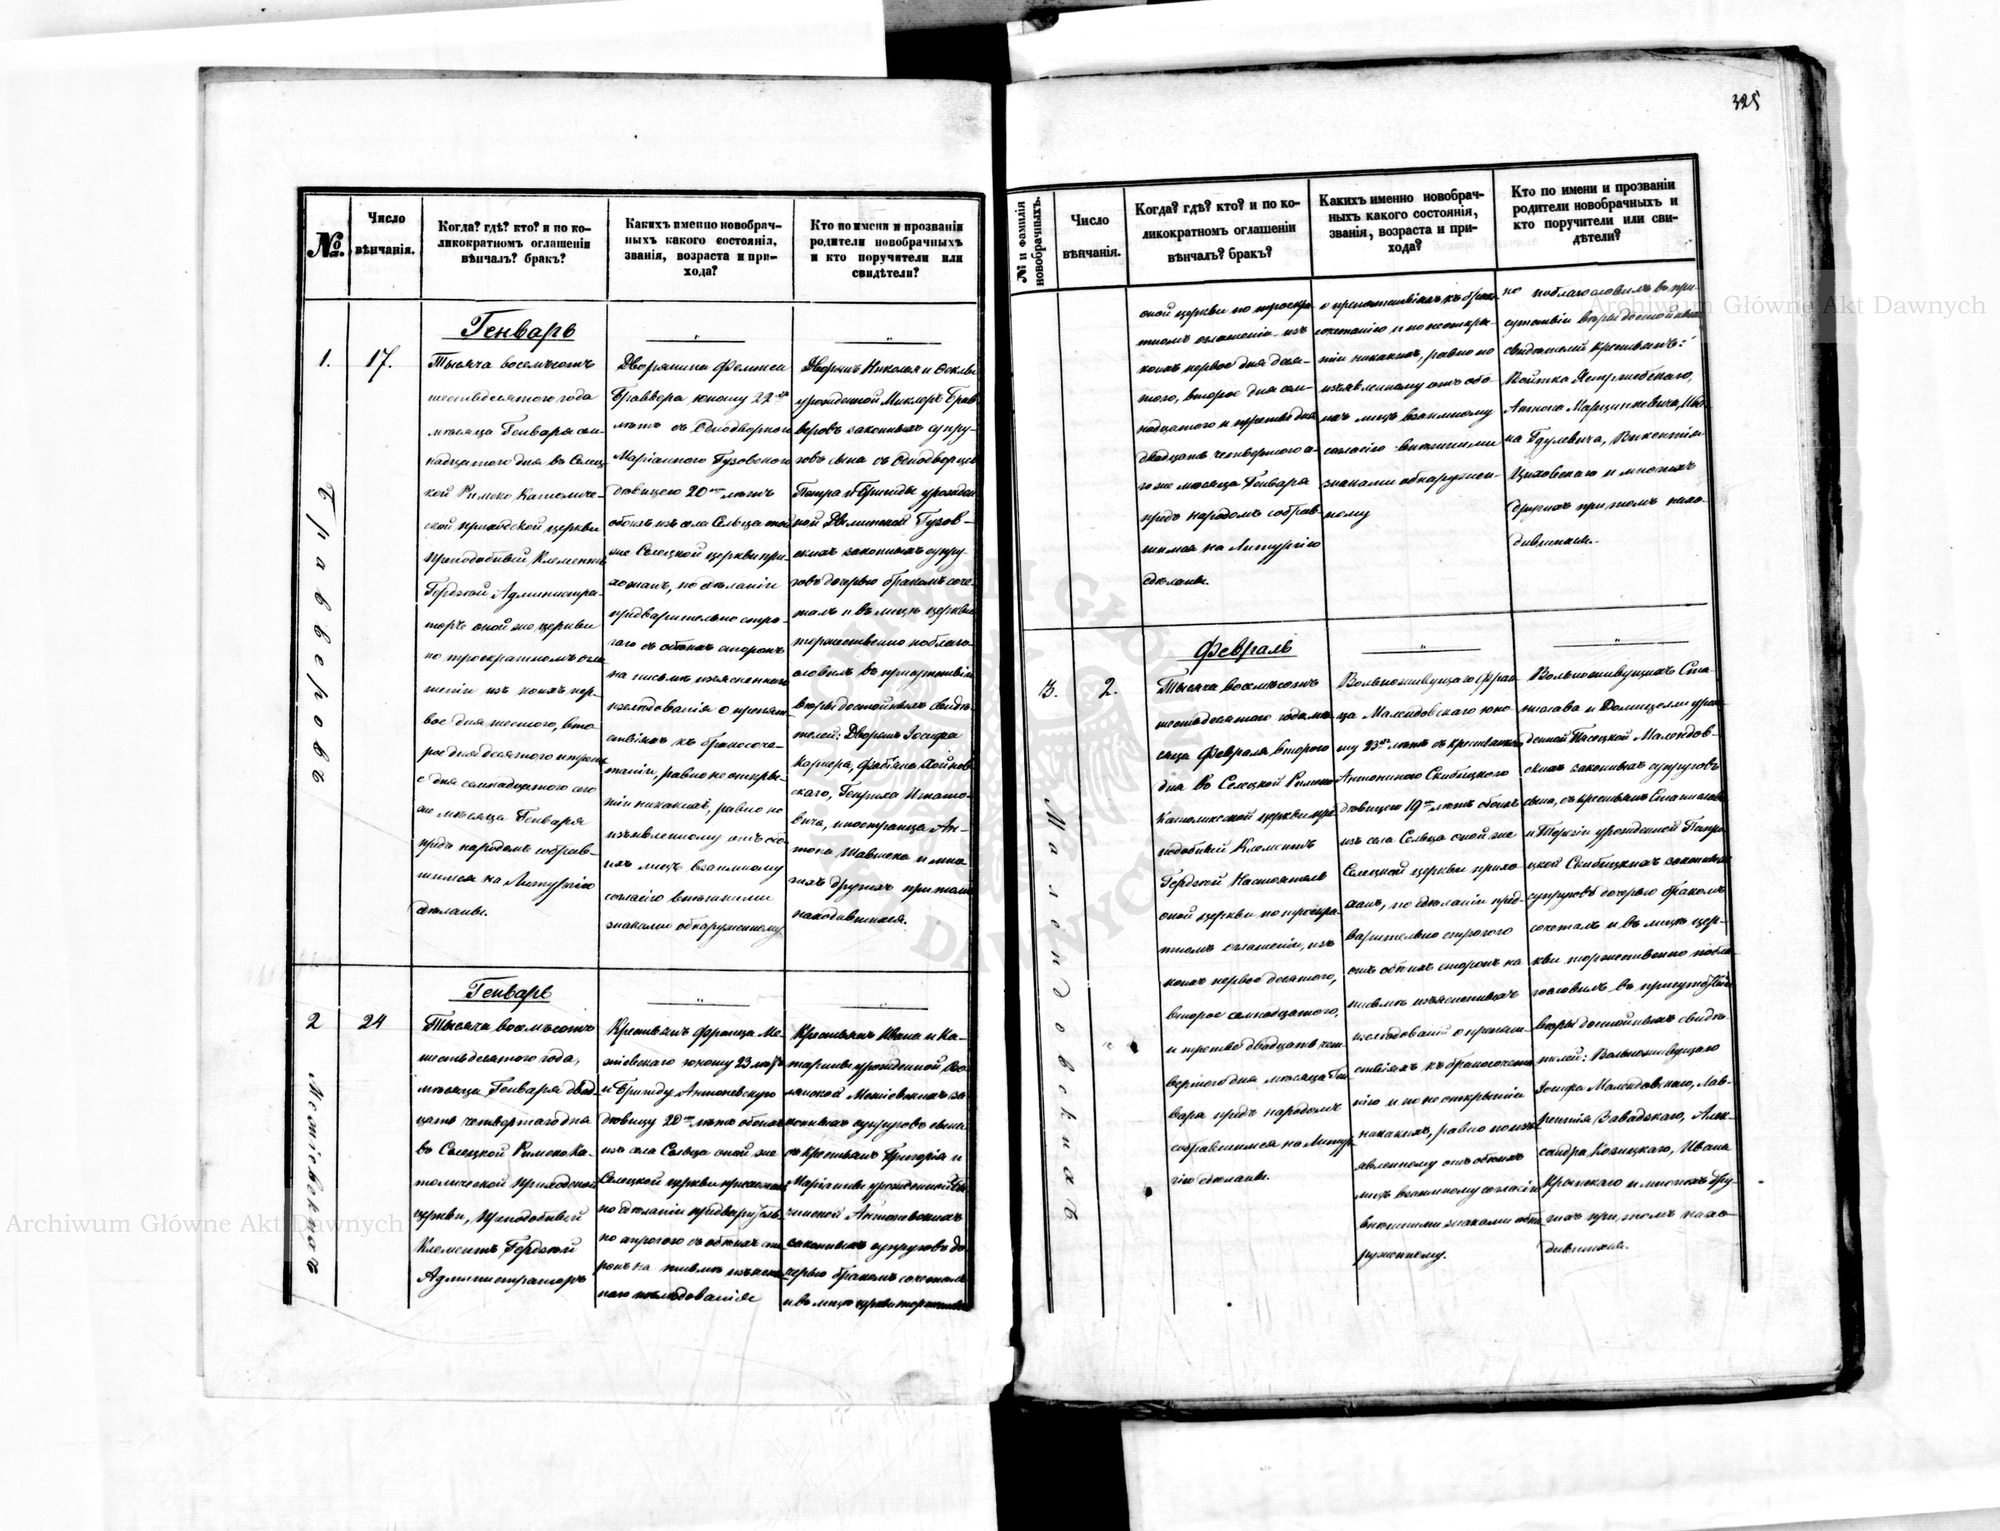 №
Число
вѣнчанія.
Когда? гдѣ? кто? и по ко-
ликократномъ оглашеніи
вѣнчалъ? бракъ?
Какихъ именно новобрач-
ныхъ какого состоянія,
званія, возраста и при-
хода?
Кто по имени и прозванію
родители новобрачныхъ
и кто поручители или
свидѣтели?
Генварь
1.
17.
Бравверовъ
Тысяча восемьсотъ
шестьдесятого года
мѣсяца Генваря сем-
надцатого дня въ Селец-
кой Римско Католиче-
ской приходской церкви
Преподобный Клементъ
Администра-
торъ оной же церкви
по троекратномъ огла-
шеніи изъ коихъ пер-
вое дня шестого, вто-
рое дня десятого и трети-
е дня семнадцатого сего
же мѣсяца Генваря
предъ народомъ собрав-
шимся на Литургію
сдѣланы.
Дворянина Феликса
Браввера юношу 22
лѣтъ съ Однодворкою
Маріанною Гузовскою
дѣвицею 20 лѣтъ
обоихъ изъ села Сельца той
же Селецкой церкви при-
хожанъ, по сдѣланіи
предварительно стро-
гаго съ обоихъ сторонъ
на письмѣ изъясненного
изслѣдованія о препят-
ствіяхъ къ бракосоче-
танію, равно не откры-
тіи никакихъ, равно по
изъявленному отъ обо-
ихъ лицъ взаимному
согласію внѣшними
знаками обнаруженному
Дворянъ Николая и Феклы
урожденной Миклеръ Брав-
веровъ законныхъ супру-
говъ сына съ Однодворцев
Петра и Бригиды урожден-
ной Гузов-
скихъ законныхъ супру-
говъ дочерью бракомъ соче-
талъ и въ лицѣ церкви
торжественно поблаго-
словилъ въ присутствіи
вѣры достойныхъ свидѣ-
телей: Дворянъ Іосифа
Карпера, Фабіана
скаго, Генриха Игнато-
вича, иностранца Ан-
тона и мно-
гихъ другихъ притомъ
находившихся.
Генварь
2
24
Тысяча восемьсотъ
шестьдесятого года,
мѣсяца Генваря двад-
цать четвертаго дня
во Селецкой Римско Ка-
толической приходской
церкви, Преподобный
Клементъ
Администраторъ
Крестьянъ Франца Ме-
юношу 23 лѣтъ
и Бригиду Антоневскую
дѣвицу 20 лѣтъ обоихъ
изъ села Сельца оной же
Селецкой церкви прихожанъ
по сдѣланіи предваритель-
но строгого съ обоихъ сто-
ронъ на письмѣ изъяснен-
ного изслѣдованія
Крестьянъ Ивана и Ка-
тарины урожденной
за-
конныхъ супруговъ сына
съ крестьянъ Григорія и
Маріанны урожденной
Антоневскихъ
законныхъ супруговъ до-
черью бракомъ сочеталъ
и въ лицѣ церкви торжествен
325
№ и фамилія
новобрачныхъ.
Число
вѣнчанія.
Когда? гдѣ? кто? и по ко-
ликократномъ оглашеніи
вѣнчалъ? бракъ?
Какихъ именно новобрач-
ныхъ какого состоянія,
званія, возраста и при-
хода?
Кто по имени и прозванію
родители новобрачныхъ и
кто поручители или сви-
дѣтели?
оной церкви по троекра-
тномъ оглашеніи изъ
коихъ первое дня деся-
того, второе дня сем-
надцатого и третье дня
двадцать четвертого а-
го же мѣсяца Генваря
предъ народомъ собрав-
шимся на Литургію
сдѣланы.
о препятствіяхъ къ брако-
сочетанію и по неоткры-
тіи никакихъ, равно по
изъявленному отъ обо-
ихъ лицъ взаимному
согласію внѣшними
знаками обнаружен-
ному
но поблагословилъ въ при-
сутствіи вѣры достойныхъ
свидѣтелей крестьянъ:
Войтка
Антона Марцинкевича, Ива-
на Гдулевича, Викентія
Циховскаго и многихъ
другихъ притомъ нахо-
дившихся.
Февраль
3.
2.
Тысяча восемьсотъ
шестьдесятого года мѣ-
сяца Февраля второго
дня во Селецкой Римско
Католической церкви пре-
подобный Клементъ
Настоятель
оной церкви по троекра-
тномъ оглашеніи, изъ
коихъ первое десятого,
второе семнадцатого,
и третье двадцать чет-
вертого дня мѣсяца Ген-
варя предъ народомъ
собравшимся на Литур-
гію сдѣланы.
Вольноживущаго Фран-
ца Малендовскаго юно-
шу 23 лѣтъ съ крестьянкою
Антониною Скибицкою
дѣвицею 19 лѣтъ обоихъ
изъ села Сельца оной же
Селецкой церкви прихо-
жанъ, по сдѣланіи пред-
варительно строгого
отъ обоихъ сторонъ на
письмѣ изъясненныхъ
изслѣдованій о препят-
ствіяхъ къ бракосочета-
нію и по не открытіи
никакихъ, равно по изъ-
явленному отъ обоихъ
лицъ взаимному согласію
внѣшними знаками обна-
руженному.
Вольноживущихъ Ста-
нислава и Домицелли урож-
денной Малендов-
скихъ законныхъ супруговъ
сына, съ крестьянъ Станислава
и Терезіи урожденной
Скибицкихъ законныхъ
супруговъ дочерью бракомъ
сочеталъ и въ лицѣ цер-
кви торжественно побла-
гословилъ въ присутствіи
вѣры достойныхъ свидѣ-
телей: Вольноживущаго
Іосифа Малендовскаго, Лав-
рентія Завадзкаго, Алек-
сандра Козицкаго, Ивана
Крынскаго и многихъ дру-
гихъ при томъ нахо-
дившихся.
Archiwum Główne Akt Dawnych
Archiwum Główne Akt Dawnych